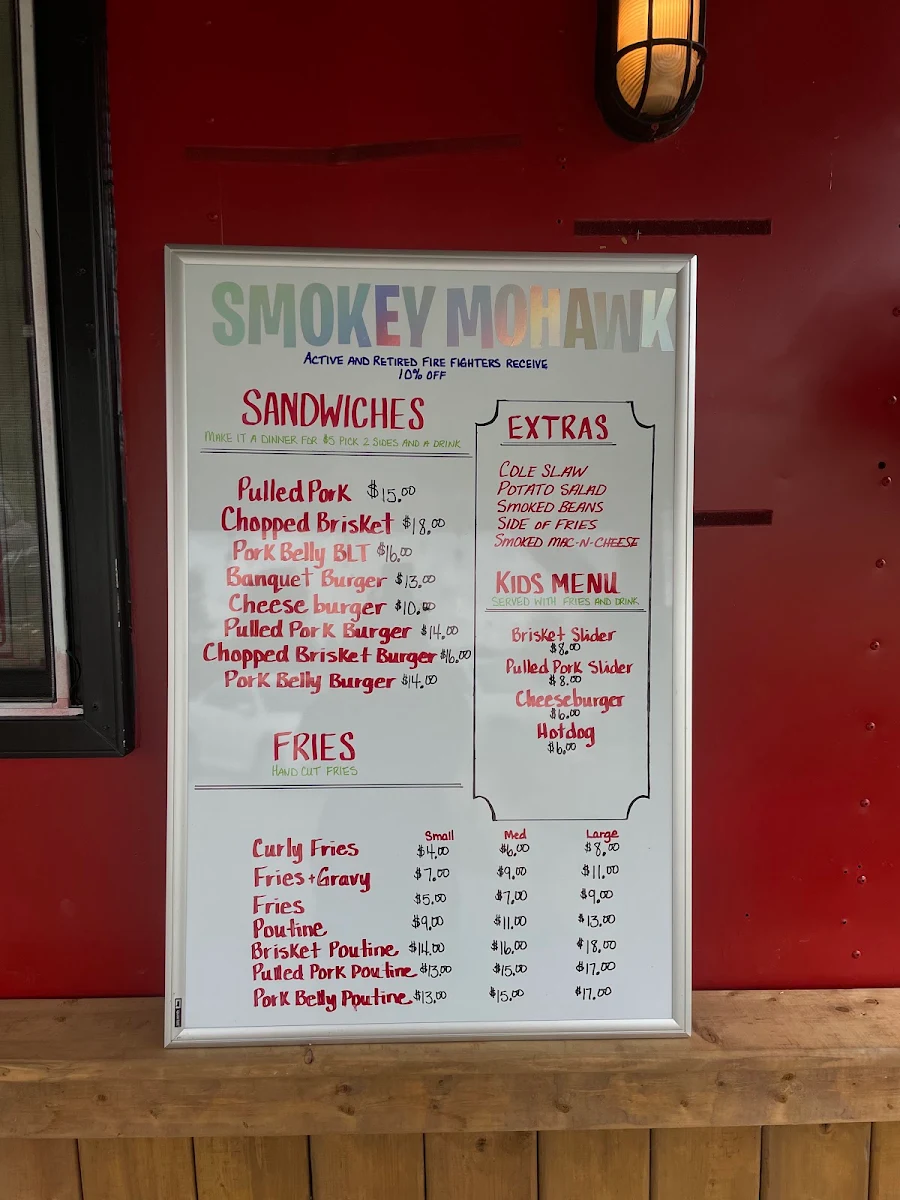 SMOKEY MOHAWK
ACTIVE AND RETIRED FIRE FIGHTERS RECEIVE
10% OFF
SANDWICHES
MAKE IT A DINNER FOR $5 PICK 2 SIDES AND A DRINK
Pulled Pork $15.00
Chopped Brisket $18.00
Pork Belly BLT $16.00
Banquet Burger $13.00
Cheese burger $10.00
Pulled Pork Burger $14.00
Chopped Brisket Burger $16.00
Pork Belly Burger $14.00
EXTRAS
COLE SLAW
POTATO SALAD
SMOKED BEANS
SIDE OF FRIES
SMOKED MAC-N-CHEESE
KIDS MENU
SERVED WITH FRIES AND DRINK
Brisket Slider
$8.00
Pulled Pork Slider
$8.00
Cheeseburger
$6.00
Hotdog
$6.00
FRIES
HAND CUT FRIES
Small Med Large
Curly Fries $4.00 $6.00 $8.00
Fries + Gravy $7.00 $9.00 $11.00
Fries $5.00 $7.00 $9.00
Poutine $9.00 $11.00 $13.00
Brisket Poutine $14.00 $16.00 $18.00
Pulled Pork Poutine $13.00 $15.00 $17.00
Pork Belly Poutine $13.00 $15.00 $17.00